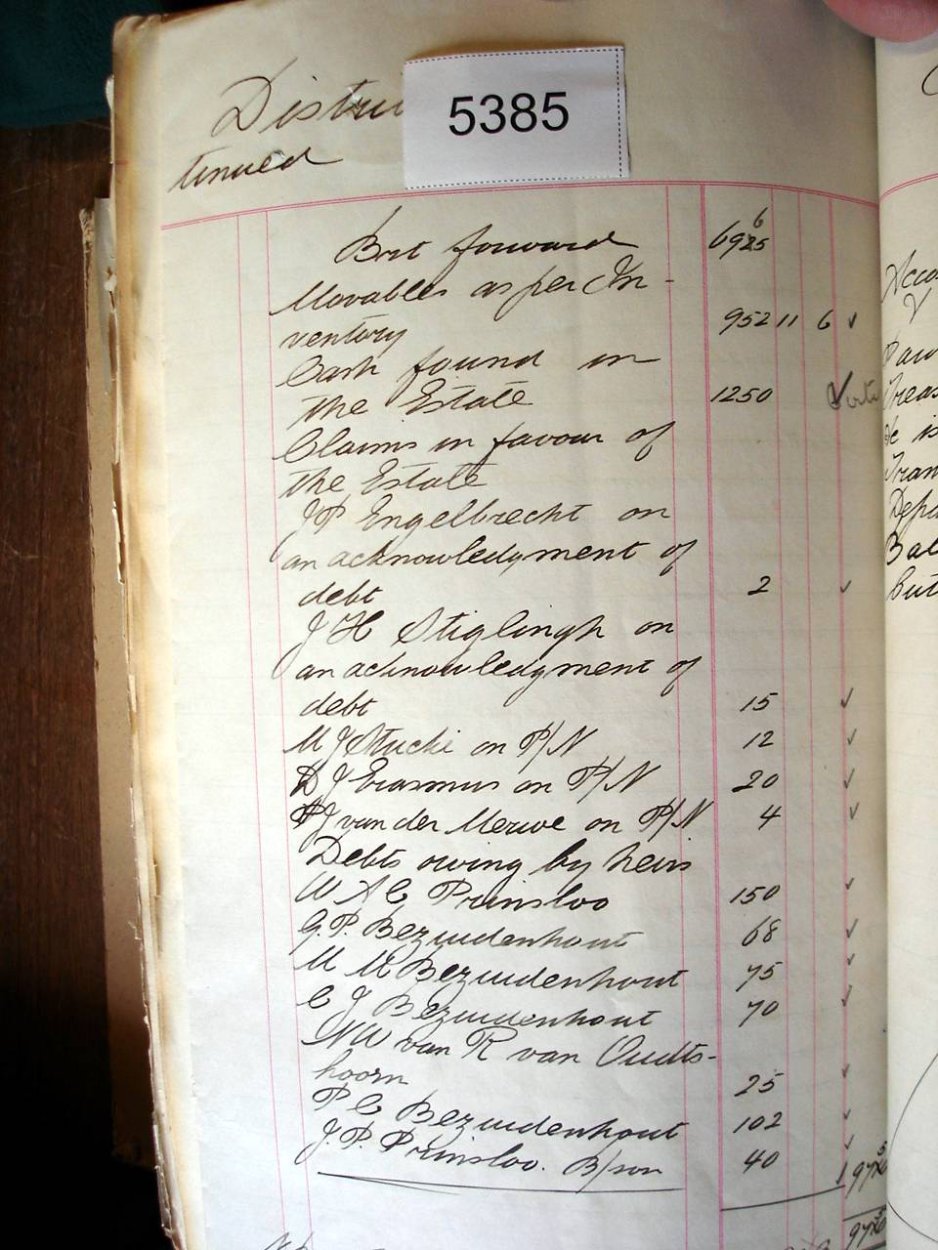 5385
Distri
tinued
Brt forward 6925 6
Movables as per In-
ventory 952 11 6 ✓
Cash found in
the Estate 1250
Claims in favour of
the Estate
J P Engelbrecht on
an acknowledgment of
debt 2 ✓
J H Stiglingh on
an acknowledgment of
debt 15 ✓
M J Stucki on P/N 12 ✓
D J Erasmus on P/N 20 ✓
P J van der Merwe on P/N 4 ✓
Debts owing by heirs
W A C Prinsloo 150 ✓
G. P. Bezuidenhout 68 ✓
M M Bezuidenhout 75 ✓
C J Bezuidenhout 70 ✓
W W van R van Oudts-
hoorn 25 ✓
P C Bezuidenhout 102 ✓
J. P. Prinsloo. B/son 40 ✓